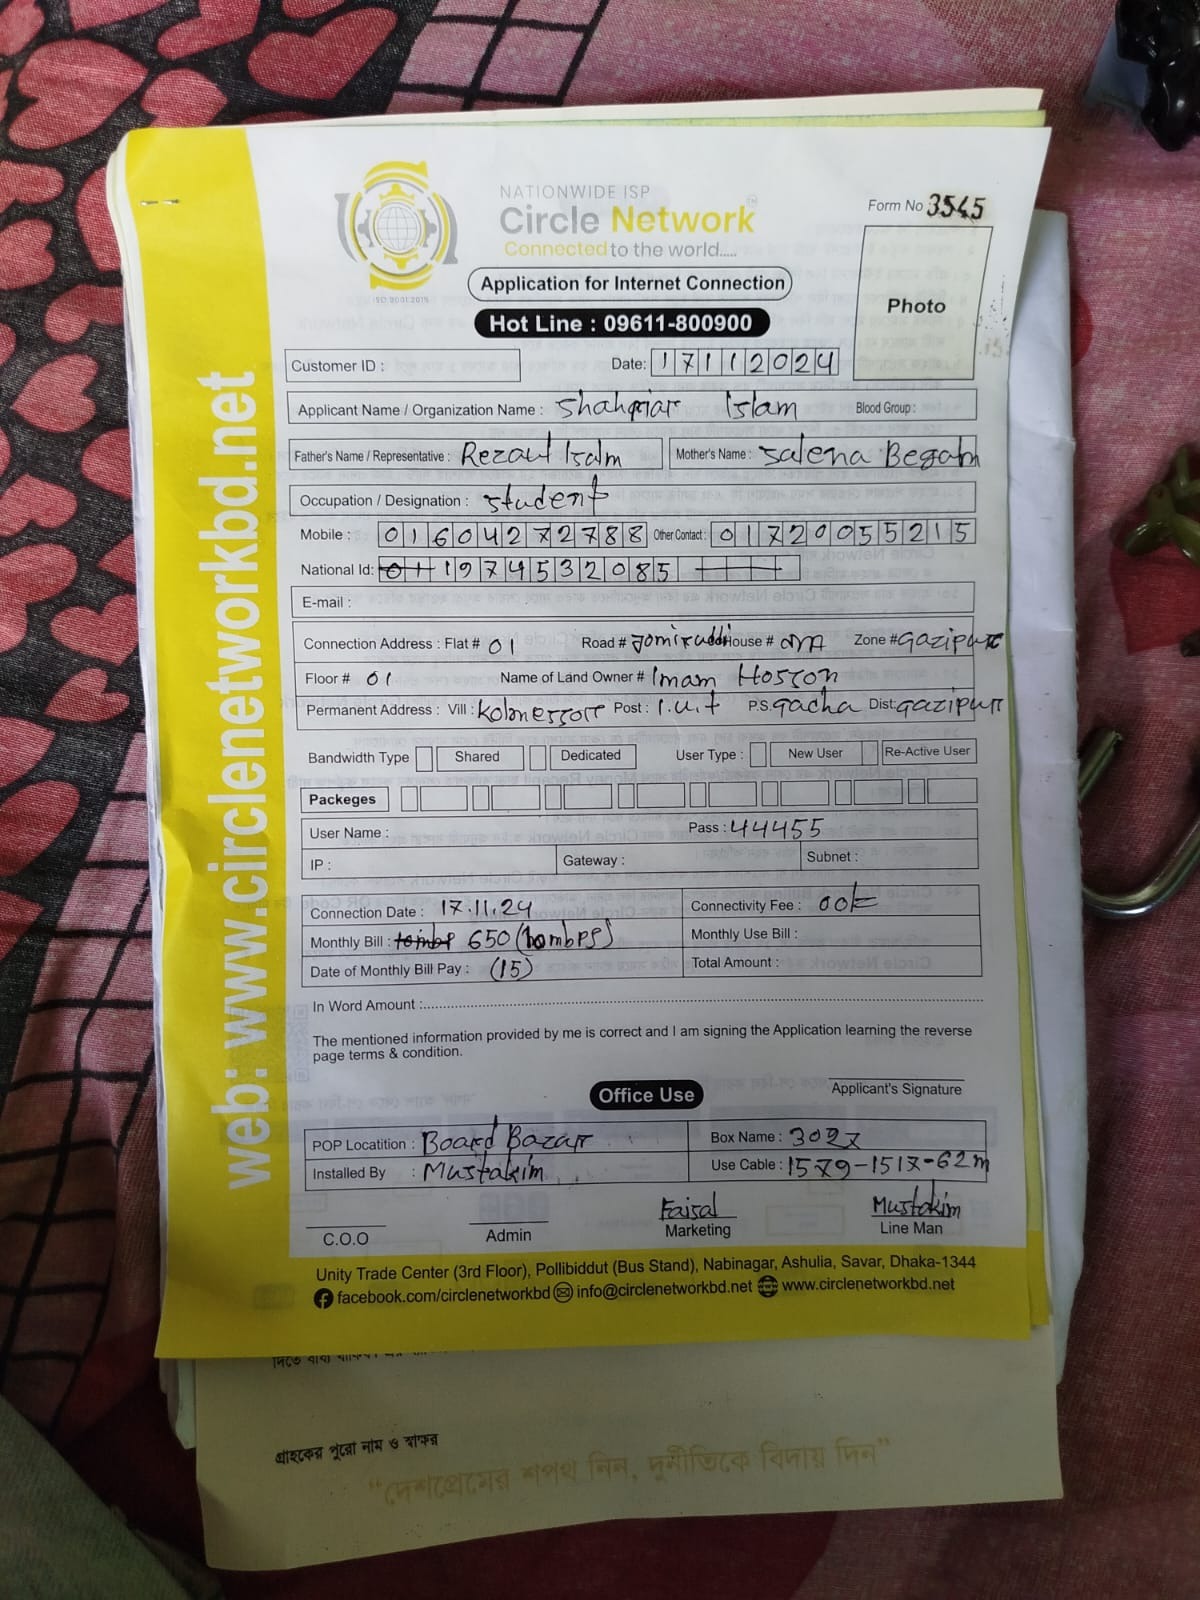 web: www.circlenetworkbd.net
NATIONWIDE ISP
Circle Network™
Connected to the world.....
ISO 9001:2015
Form No 3545
Photo
Application for Internet Connection
Hot Line : 09611-800900
Customer ID :
Date: 17112024
Applicant Name / Organization Name : Shahriar Islam Blood Group :
Father's Name / Representative : Rezaul Isalm Mother's Name : Salena Begam
Occupation / Designation : Student
Mobile : 01604272788 Other Contact : 01720055215
National Id: 01 1974532085
E-mail :
Connection Address : Flat # 01 Road # Jomiruddi House # N/A Zone # Gazipur
Floor # 01 Name of Land Owner # Imam Hosson
Permanent Address : Vill : Post : I.u.t P.S. gacha Dist: gazipur
Bandwidth Type Shared Dedicated User Type : New User Re-Active User
Packeges
User Name : Pass : 44455
IP : Gateway : Subnet :
Connection Date : 17.11.24 Connectivity Fee : ook
Monthly Bill : 650 Monthly Use Bill :
Date of Monthly Bill Pay : (15) Total Amount :
In Word Amount :
The mentioned information provided by me is correct and I am signing the Application learning the reverse
page terms & condition.
Applicant's Signature
Office Use
POP Locatition : Board Bazar Box Name : 302x
Installed By : Mustakim Use Cable : 1579-1517-62m
Faisal Mustakim
C.O.O Admin Marketing Line Man
Unity Trade Center (3rd Floor), Pollibiddut (Bus Stand), Nabinagar, Ashulia, Savar, Dhaka-1344
facebook.com/circlenetworkbd info@circlenetworkbd.net www.circlenetworkbd.net
গ্রাহকের পুরো নাম ও স্বাক্ষর
“দেশপ্রেমের শপথ নিন, দুর্নীতিকে বিদায় দিন”